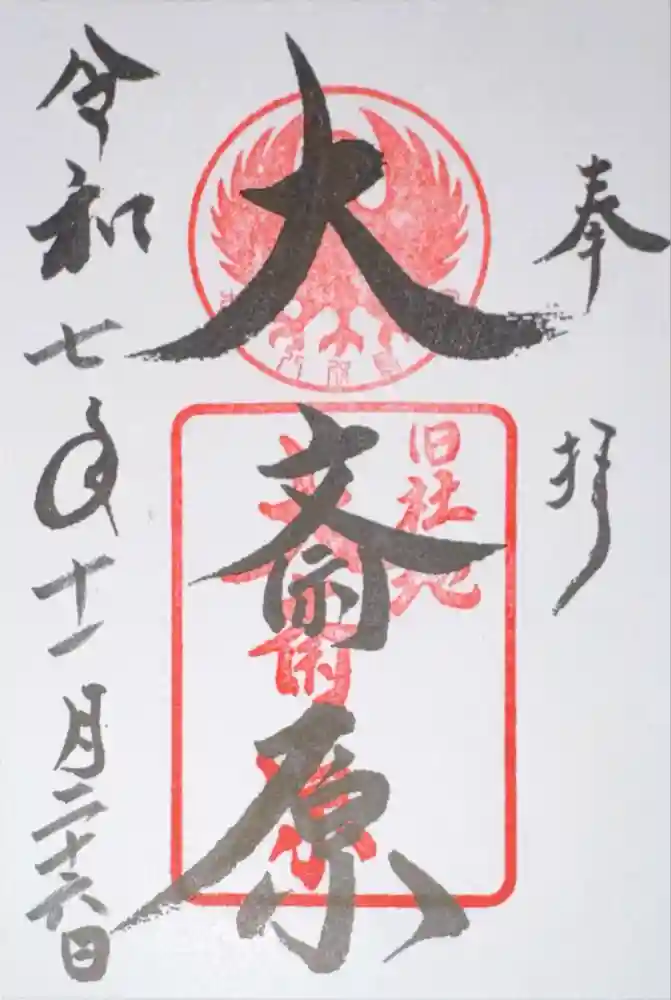 奉拝
大斎原
旧社地
大斎原
令和七年十一月二十六日